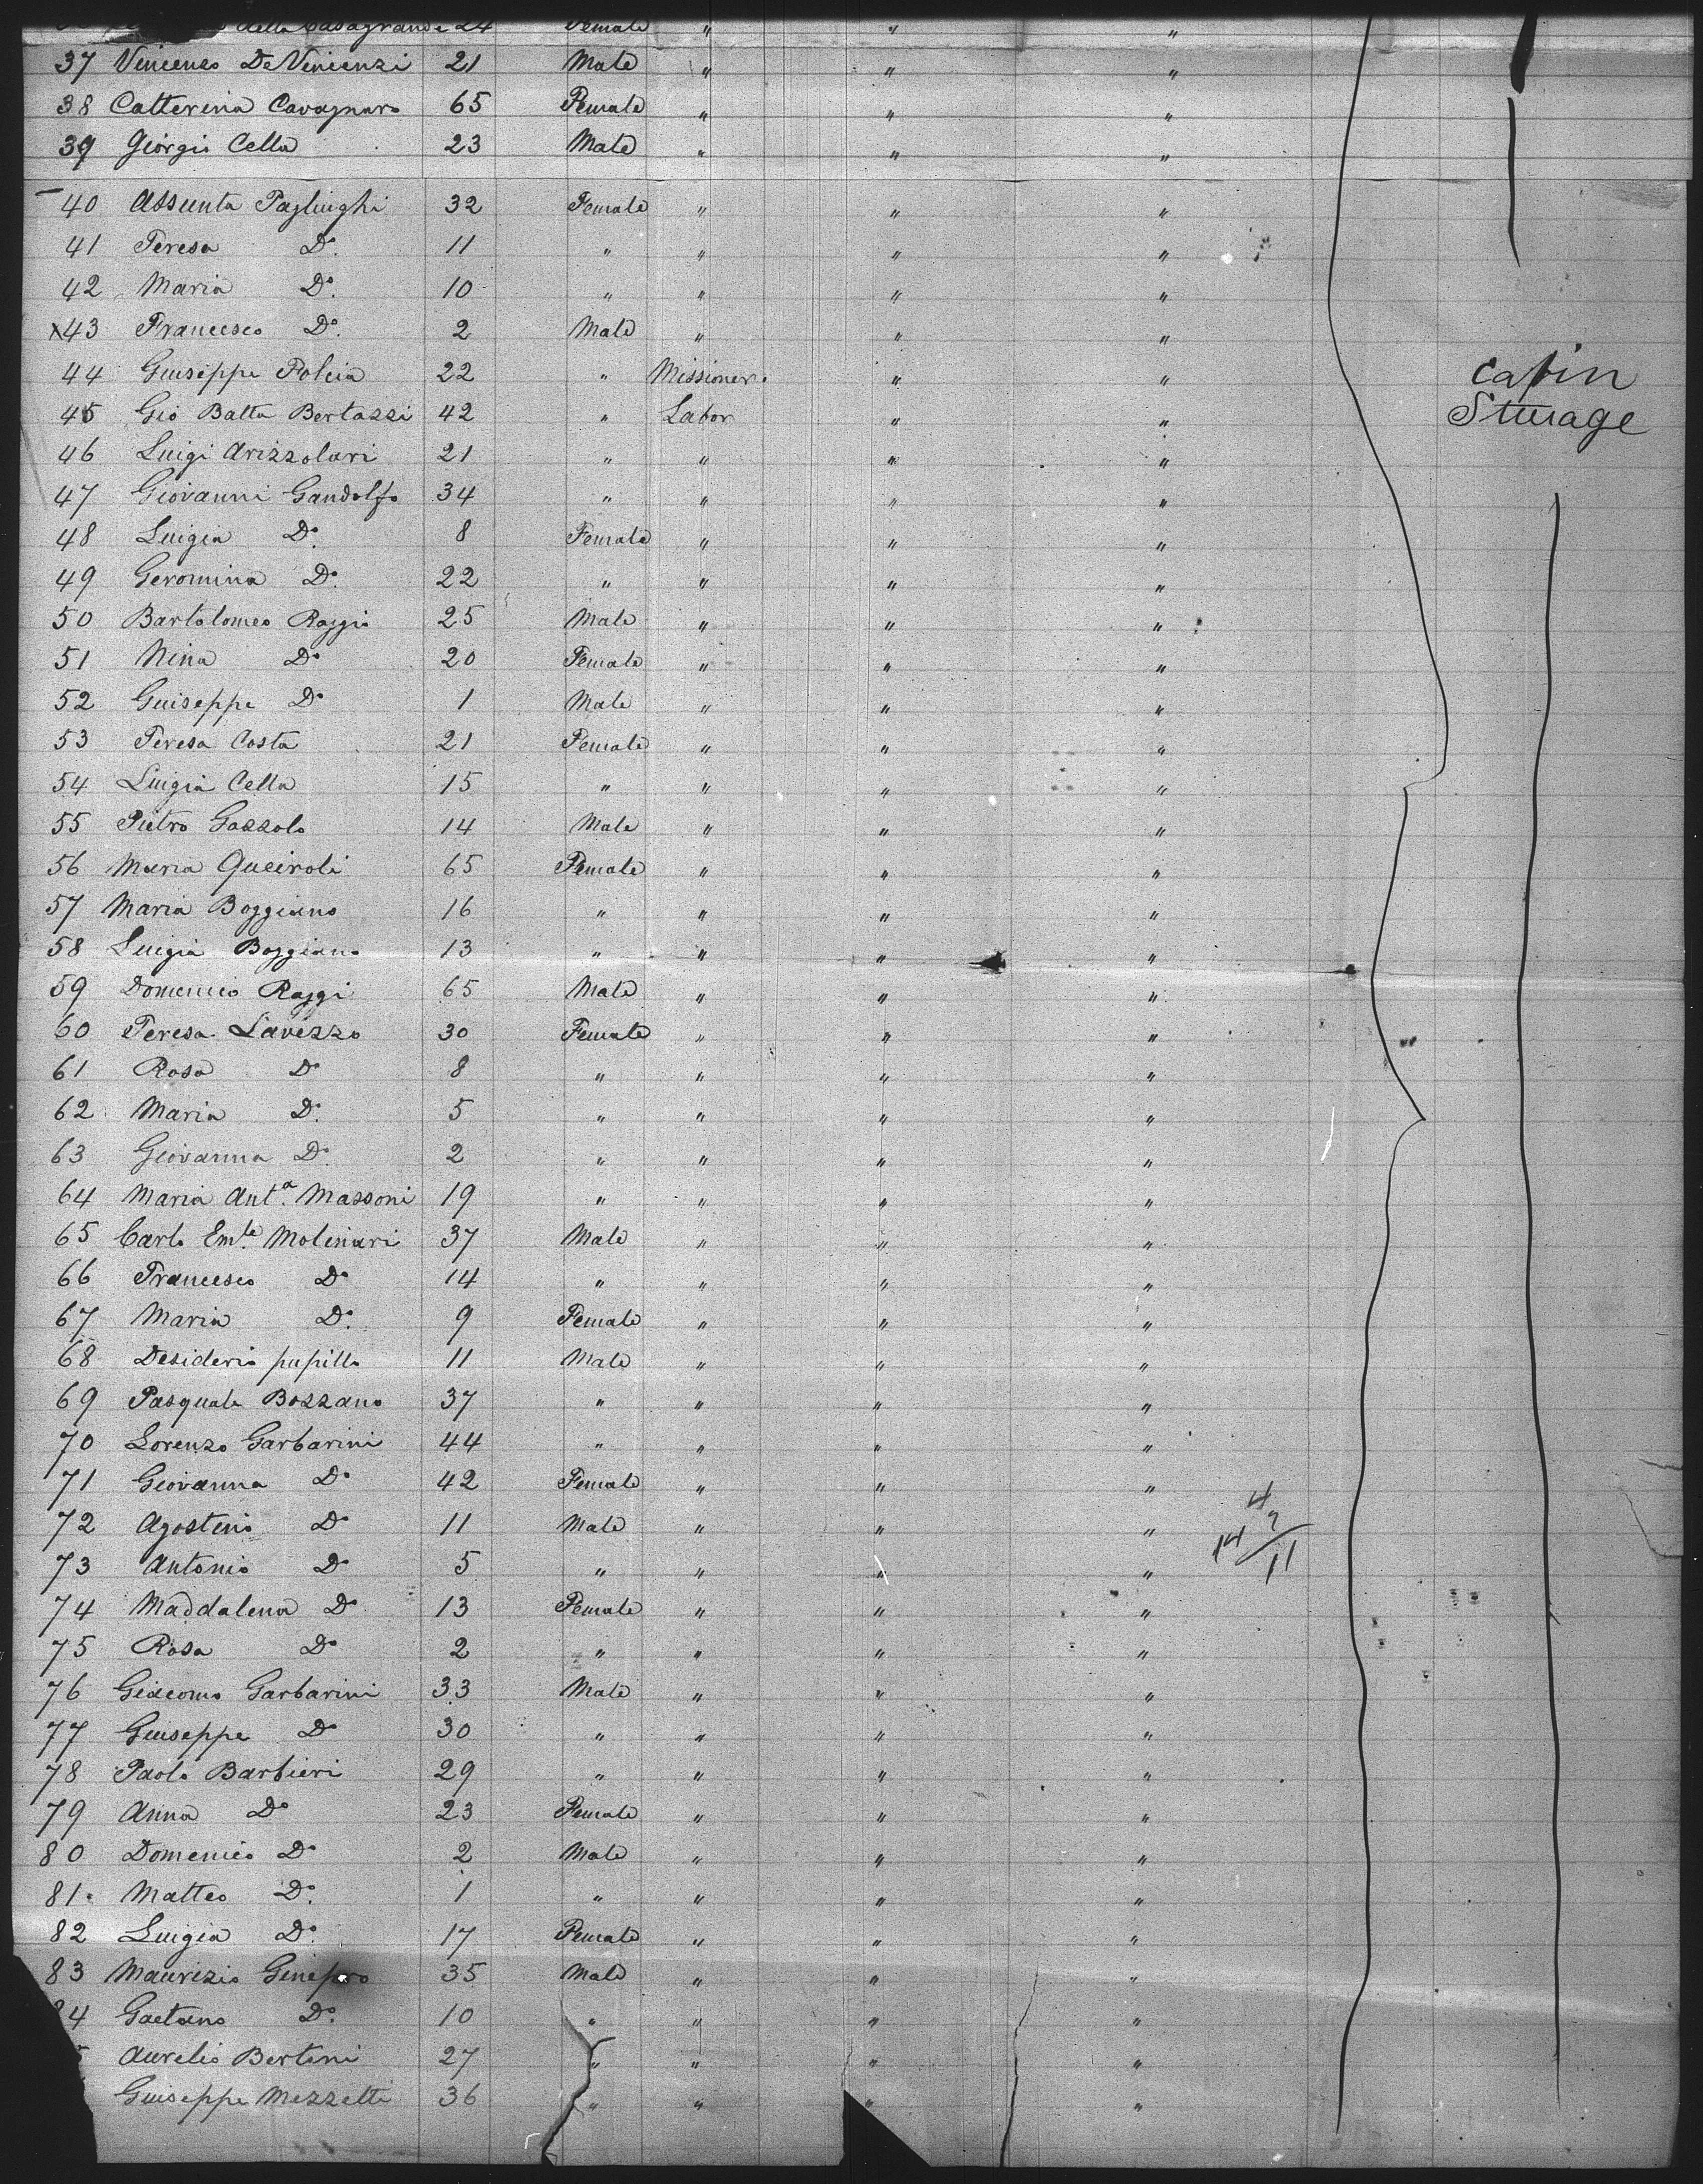 della Casagrande 24 Female " " "
37 Vincenzo De Vincenzi 21 Male " " "
38 Catterina Cavagnaro 65 Female " " "
39 Giorgio Cella 23 Male " " "
40 Assunta Pagliughi 32 Female " " "
41 Teresa Do. 11 " " " "
42 Maria Do. 10 " " " "
x43 Francesco Do. 2 Male " " "
44 Guiseppe Folcia 22 " Missioner. " "
45 Gio Batta Bertazzi 42 " Labor " " Cabin Sturage
46 Luigi Arizzolari 21 " " " "
47 Giovanni Gandolfo 34 " " " "
48 Luigia Do. 8 Female " " "
49 Geromina Do. 22 " " " "
50 Bartolomeo Raggio 25 Male " " "
51 Nina Do 20 Female " " "
52 Guiseppe Do 1 Male " " "
53 Teresa Costa 21 Female " " "
54 Luigia Cella 15 " " " "
55 Pietro Gazzolo 14 Male " " "
56 Maria Queiroli 65 Female " " "
57 Maria Boggiano 16 " " " "
58 Luigia Boggiano 13 " " " "
59 Domenico Raggi 65 Male " " "
60 Teresa Lavezzo 30 Female " " "
61 Rosa Do 8 " " " "
62 Maria Do. 5 " " " "
63 Giovanna Do. 2 " " " "
64 Maria Ant.a Massoni 19 " " " "
65 Carlo Em.le Molinari 37 Male " " "
66 Francesco Do 14 " " " "
67 Maria Do. 9 Female " " "
68 Desiderio pupillo 11 Male " " "
69 Pasquale Bozzano 37 " " " "
70 Lorenzo Garbarini 44 " " " "
71 Giovanna Do 42 Female " " "
72 Agostino Do 11 Male " " " 4
73 Antonio Do 5 " " " " 14 11
74 Maddalena Do 13 Female " " "
75 Rosa Do 2 " " " "
76 Giacomo Garbarini 33 Male " " "
77 Guiseppe Do 30 " " " "
78 Paolo Barbieri 29 " " " "
79 Anna Do 23 Female " " "
80 Domenico Do 2 Male " " "
81. Matteo Do. 1 " " " "
82 Luigia Do. 17 Female " " "
83 Maurizio Ginepro 35 Male " " "
84 Gaetano Do. 10 " " " "
Aurelio Bertini 27 " " " "
Guiseppe Mezzetti 36 " " " "